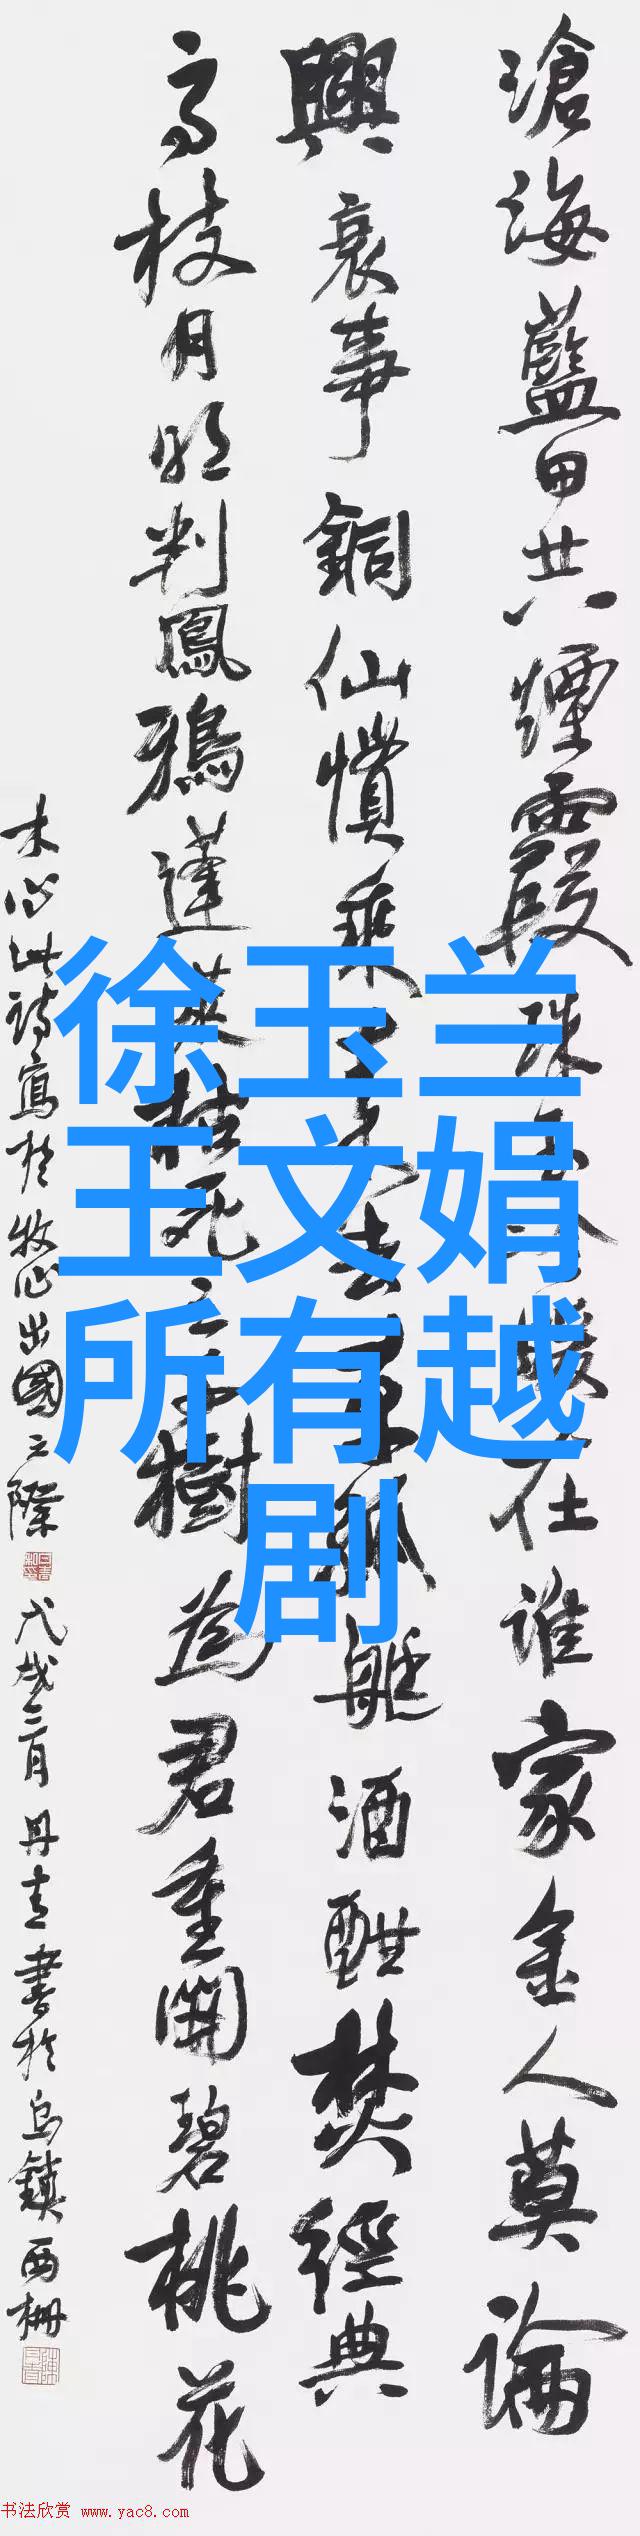 滄海藍田共煙霞珠
在誰家金人莫論
興衰事銅仙慣乘
艇酒酣焚經典
高枝月明判鳳鴉蓬萊
枯死
樹為君重開碧桃花
木心此詩寫於
牧心出國之際
戊戌三月丹青書於烏鎮西柵
徐玉兰
王文娟
所有越
剧
书法欣赏 www.yac8.com